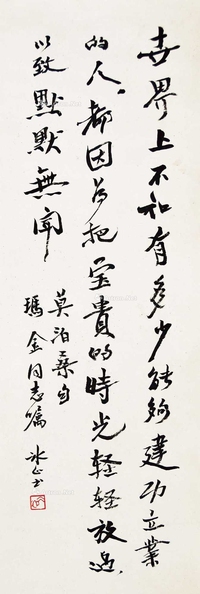 世界上不知有多少能夠建功立業
的人，都因为把宝貴的時光輕輕放過，
以致默默無聞
莫泊桑句
瑪金同志嘱 冰心书